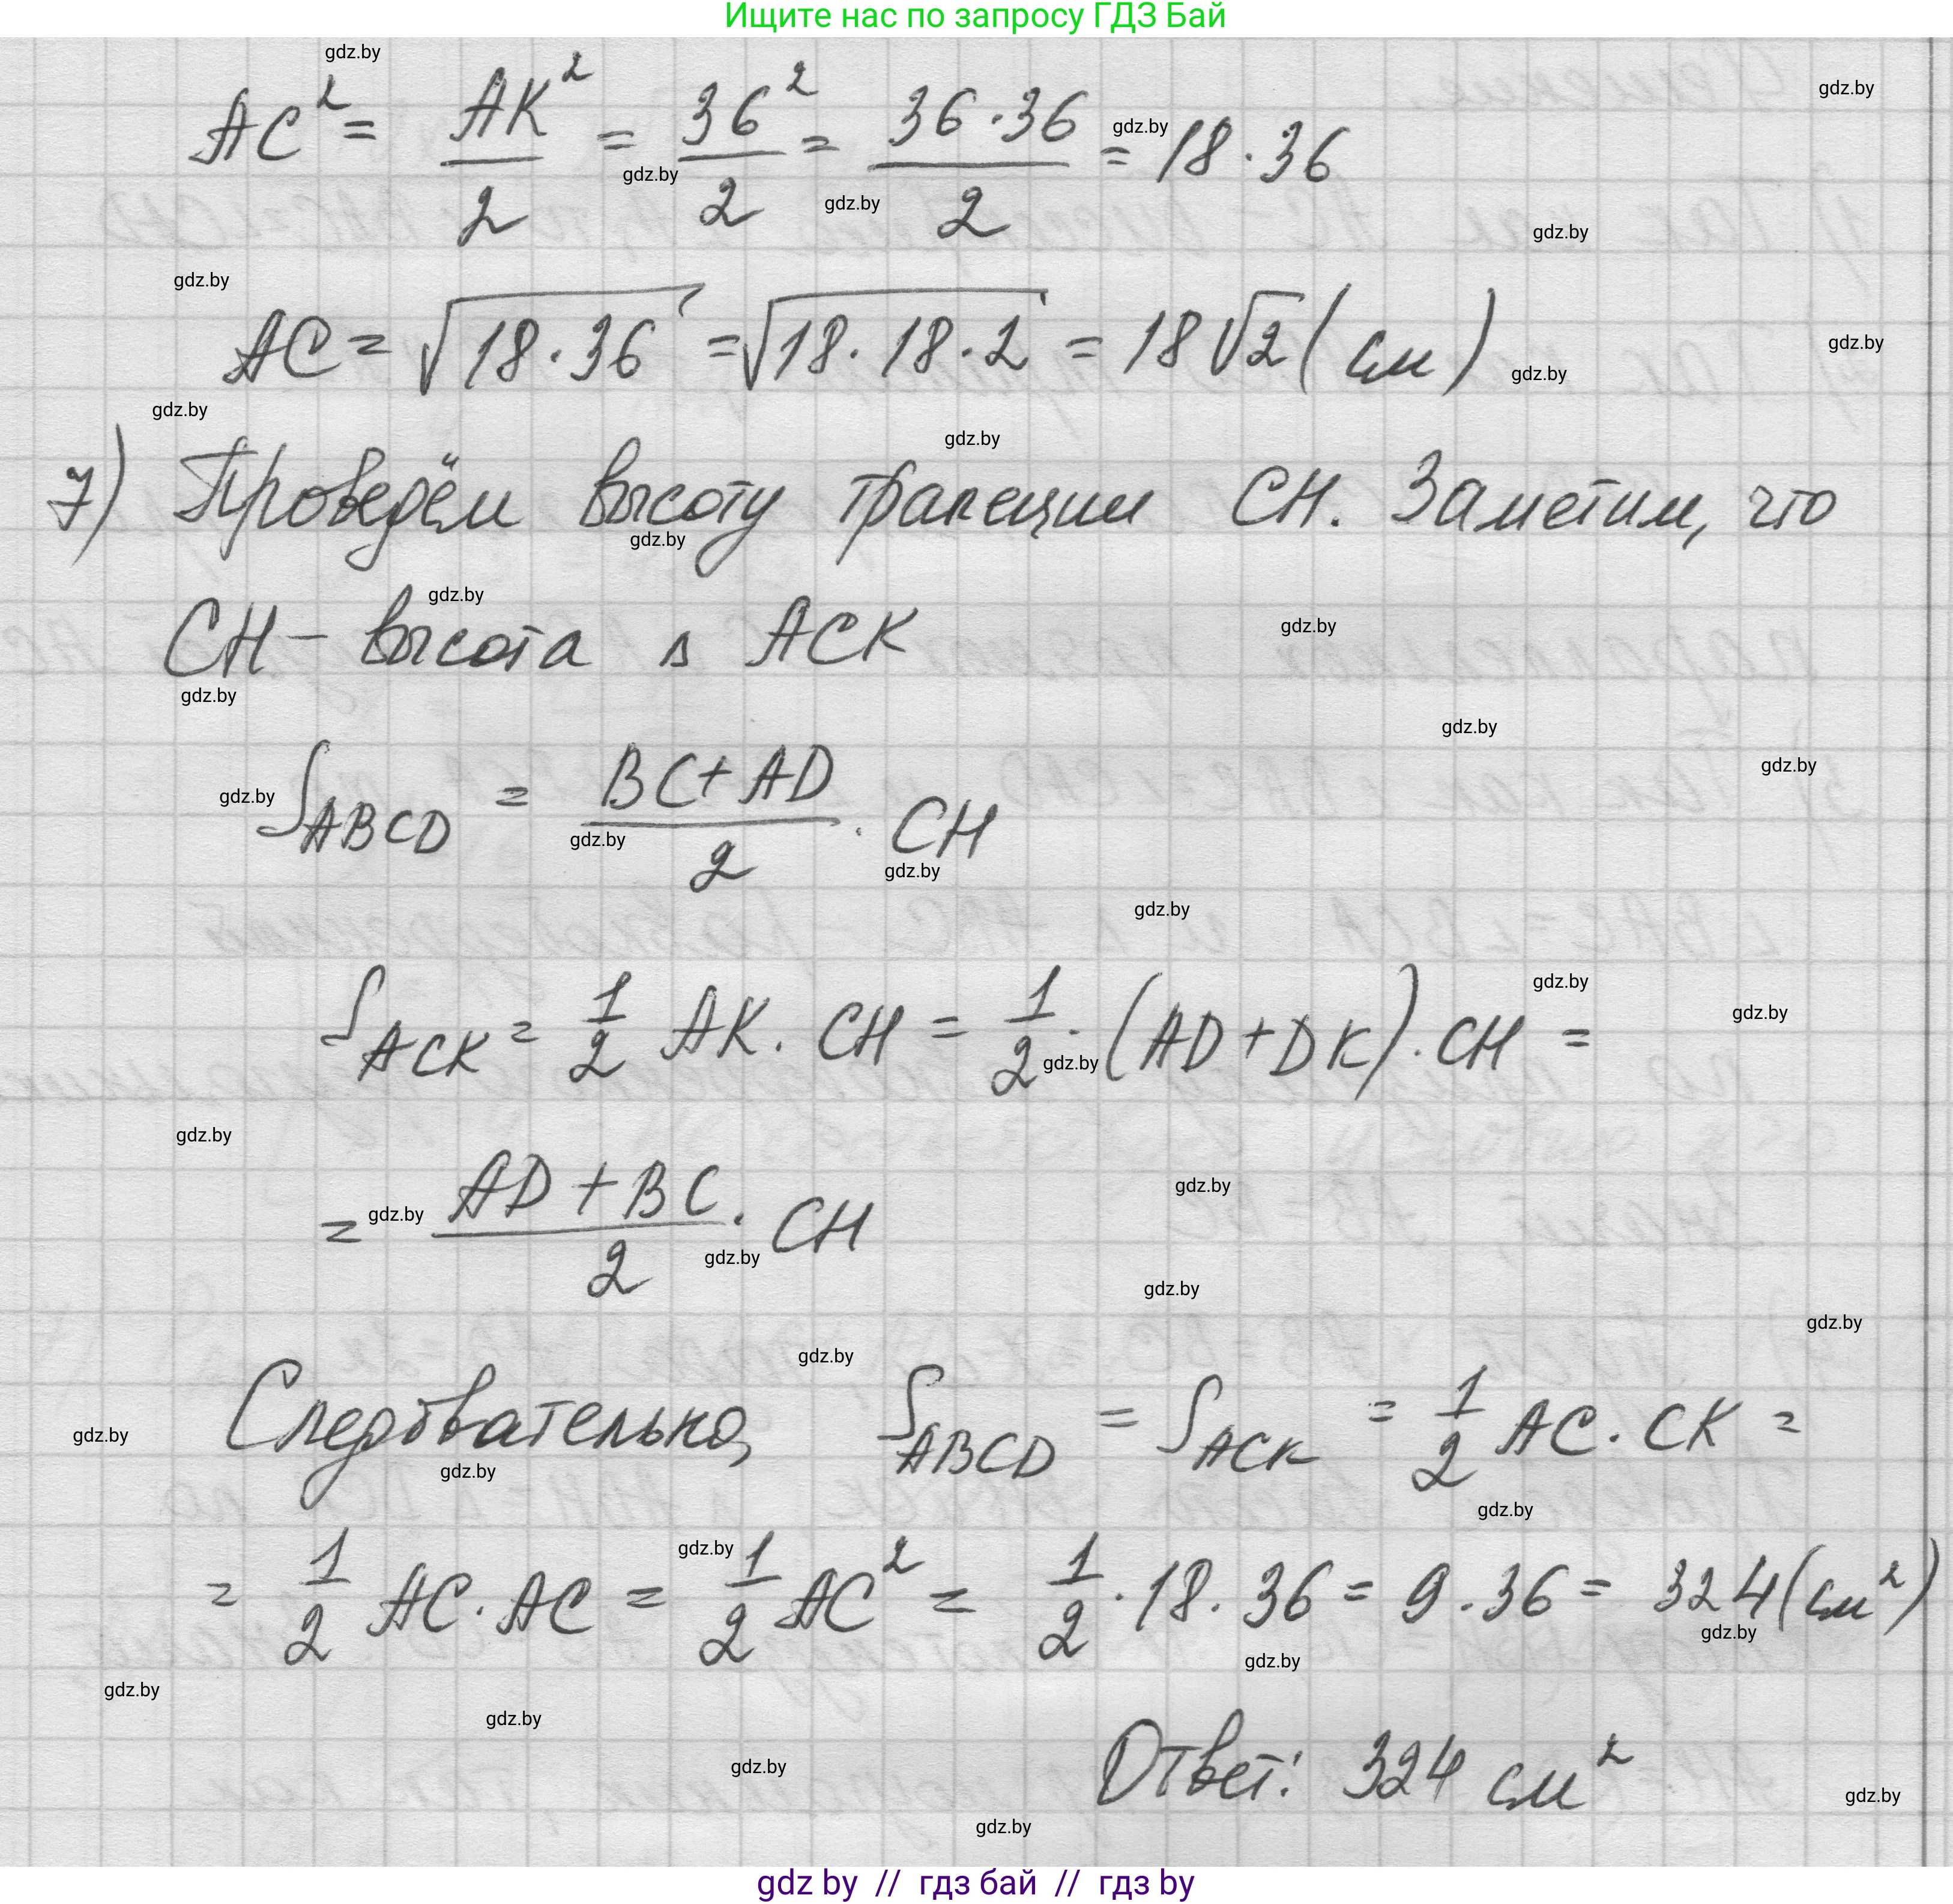 Ищите нас по запросу ГДЗ Бай
AC² = AK²/2 = 36²/2 = 36·36/2 = 18·36
AC = √18·36 = √18·18·2 = 18√2 (см)
7) Проведём высоту трапеции CH. Заметим, что
CH – высота △ ACK
S_ABCD = (BC+AD)/2 · CH
S_ACK = 1/2 AK · CH = 1/2 · (AD+DK) · CH =
= (AD+BC)/2 · CH
Следовательно, S_ABCD = S_ACK = 1/2 AC · CK =
= 1/2 AC · AC = 1/2 AC² = 1/2 · 18 · 36 = 9 · 36 = 324 (см²)
Ответ: 324 см²
gdz by // гдз бай // гдз by